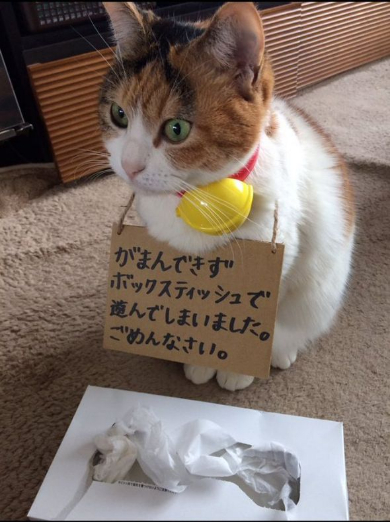 がまんできず
ボックスティッシュで
遊んでしまいました。
ごめんなさい。